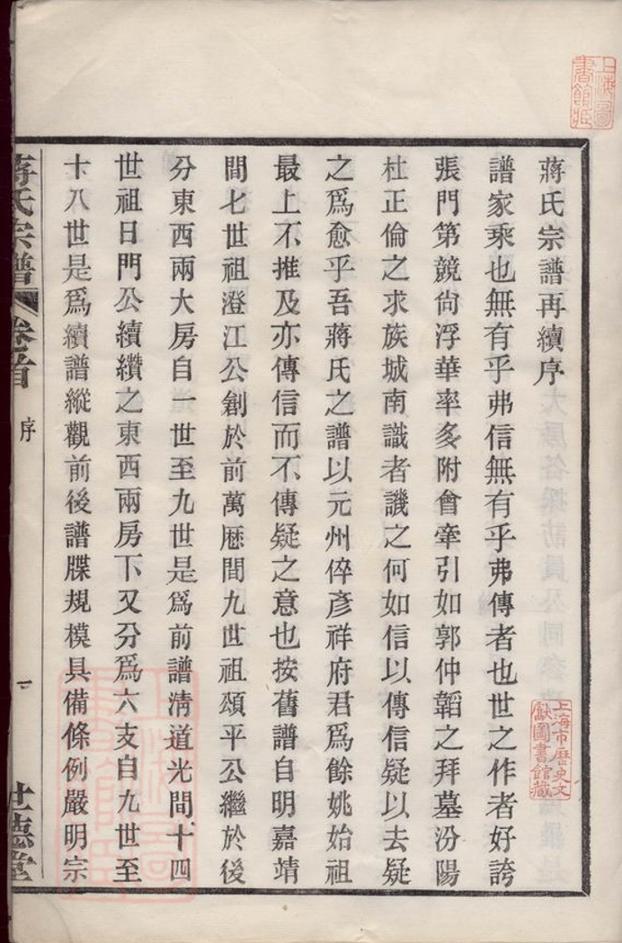 蔣氏宗譜再續序
譜家乘也無有乎弗信無有乎弗傳者也世之作者好誇
張門第競尙浮華率多附會牽引如郭仲韜之拜墓汾陽
杜正倫之求族城南識者譏之何如信以傳信疑以去疑
之爲愈乎吾蔣氏之譜以元州倅彥祥府君爲餘姚始祖
最上不推及亦傳信而不傳疑之意也按舊譜自明嘉靖
間七世祖澄江公創於前萬厯間九世祖頌平公繼於後
分東西兩大房自一世至九世是爲前譜淸道光間十四
世祖日門公續纘之東西兩房下又分爲六支自九世至
十八世是爲續譜縱觀前後譜牒規模具備條例嚴明宗
蔣氏宗譜
卷首
序
一
世德堂
上海圖書館藏
上海市歷史文獻圖書館藏